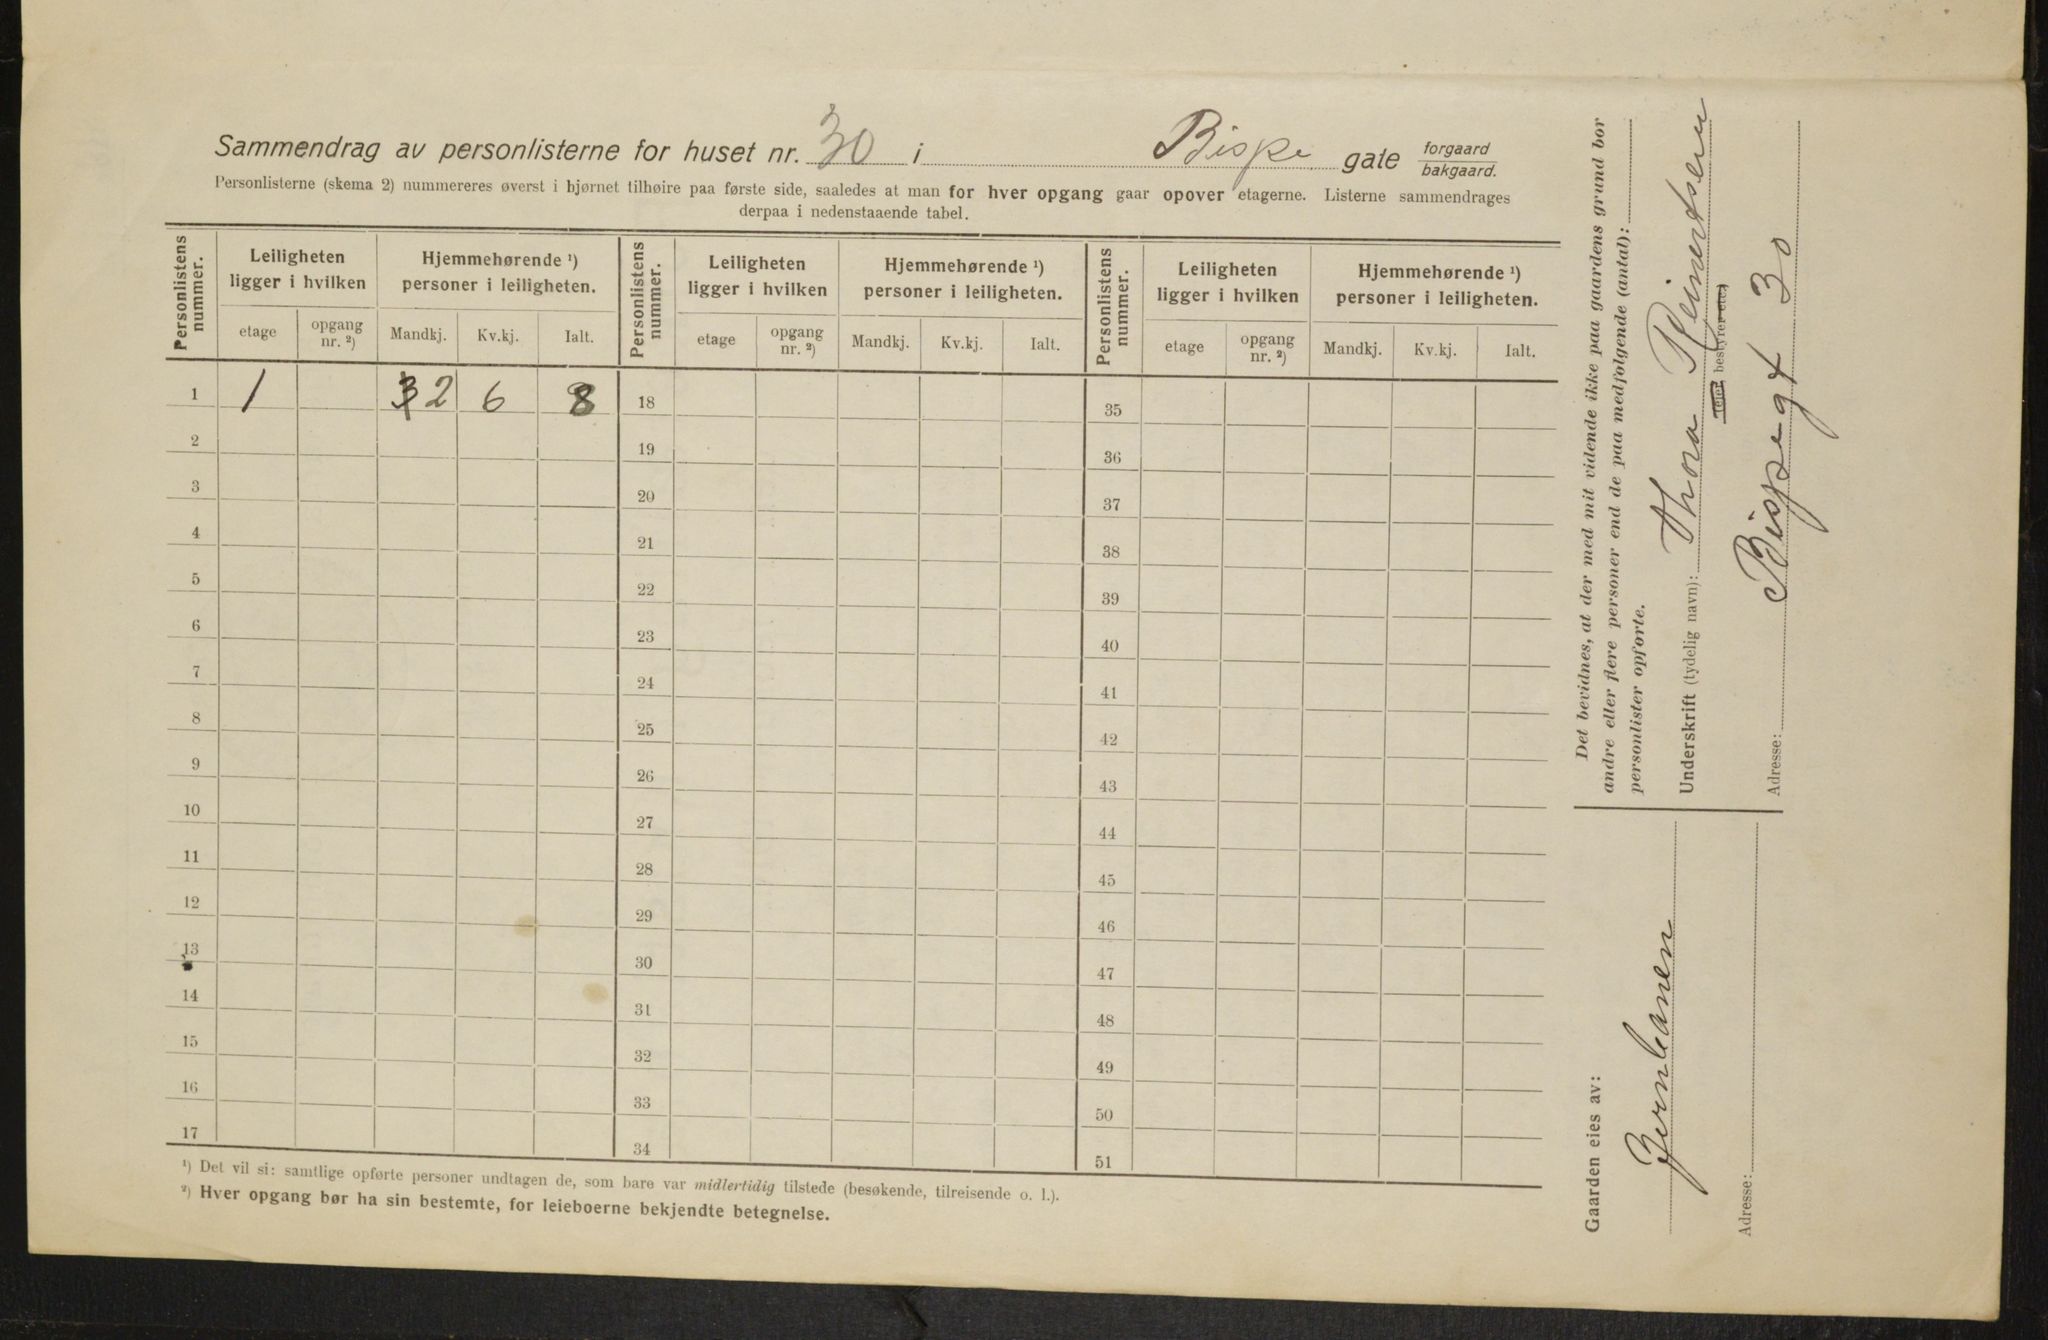 Sammendrag av personlisterne for huset nr. 30 i Bispe gate forgaard bakgaard.
Personlisterne (skema 2) nummereres øverst i hjørnet tilhøire paa første side, saaledes at man for hver opgang gaar opover etagerne. Listerne sammendrages
derpaa i nedenstaaende tabel.
Personlistens nummer. Leiligheten ligger i hvilken Hjemmehørende ¹) personer i leiligheten. Personlistens nummer. Leiligheten ligger i hvilken Hjemmehørende ¹) personer i leiligheten. Personlistens nummer. Leiligheten ligger i hvilken Hjemmehørende ¹) personer i leiligheten.
etage opgang nr. ²) Mandkj. Kv.kj. Ialt. etage opgang nr. ²) Mandkj. Kv.kj. Ialt. etage opgang nr. ²) Mandkj. Kv.kj. Ialt.
1 1 3 2 6 8 18 35
2 19 36
3 20 37
4 21 38
5 22 39
6 23 40
7 24 41
8 25 42
9 26 43
10 27 44
11 28 45
12 29 46
13 30 47
14 31 48
15 32 49
16 33 50
17 34 51
¹) Det vil si: samtlige opførte personer undtagen de, som bare var midlertidig tilstede (besøkende, tilreisende o. l.).
²) Hver opgang bør ha sin bestemte, for leieboerne bekjendte betegnelse.
Det bevidnes, at der med mit vidende ikke paa gaardens grund bor
andre eller flere personer end de paa medfølgende (antal):
personlister opførte.
Underskrift (tydelig navn): Thora Reinertsen
(eier bestyrer etc.)
Adresse: Bispegt 30
Gaarden eies av:
Jernbanen
Adresse: